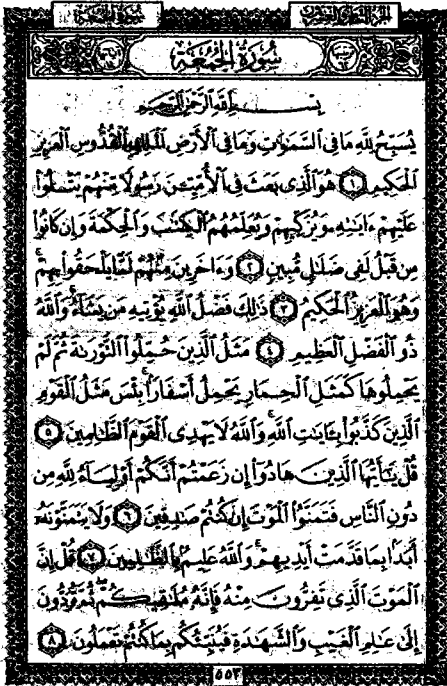 سُورَةُ الجُمُعَةِ
الجُزءُ الثَّامِنُ وَالعِشْرُونَ
سُورَةُ الجُمُعَةِ
بِسْمِ ٱللَّهِ ٱلرَّحْمَٰنِ ٱلرَّحِيمِ
يُسَبِّحُ لِلَّهِ مَا فِي ٱلسَّمَٰوَٰتِ وَمَا فِي ٱلْأَرْضِ ٱلْمَلِكِ ٱلْقُدُّوسِ ٱلْعَزِيزِ
ٱلْحَكِيمِ ١ هُوَ ٱلَّذِي بَعَثَ فِي ٱلْأُمِّيِّۦنَ رَسُولًا مِّنْهُمْ يَتْلُوا۟
عَلَيْهِمْ ءَايَٰتِهِۦ وَيُزَكِّيهِمْ وَيُعَلِّمُهُمُ ٱلْكِتَٰبَ وَٱلْحِكْمَةَ وَإِن كَانُوا۟
مِن قَبْلُ لَفِي ضَلَٰلٍ مُّبِينٍ ٢ وَءَاخَرِينَ مِنْهُمْ لَمَّا يَلْحَقُوا۟ بِهِمْ ۚ
وَهُوَ ٱلْعَزِيزُ ٱلْحَكِيمُ ٣ ذَٰلِكَ فَضْلُ ٱللَّهِ يُؤْتِيهِ مَن يَشَآءُ ۚ وَٱللَّهُ
ذُو ٱلْفَضْلِ ٱلْعَظِيمِ ٤ مَثَلُ ٱلَّذِينَ حُمِّلُوا۟ ٱلتَّوْرَىٰةَ ثُمَّ لَمْ
يَحْمِلُوهَا كَمَثَلِ ٱلْحِمَارِ يَحْمِلُ أَسْفَارًۢا ۚ بِئْسَ مَثَلُ ٱلْقَوْمِ
ٱلَّذِينَ كَذَّبُوا۟ بِـَٔايَٰتِ ٱللَّهِ ۚ وَٱللَّهُ لَا يَهْدِي ٱلْقَوْمَ ٱلظَّٰلِمِينَ ٥
قُلْ يَٰٓأَيُّهَا ٱلَّذِينَ هَادُوٓا۟ إِن زَعَمْتُمْ أَنَّكُمْ أَوْلِيَآءُ لِلَّهِ مِن
دُونِ ٱلنَّاسِ فَتَمَنَّوُا۟ ٱلْمَوْتَ إِن كُنتُمْ صَٰدِقِينَ ٦ وَلَا يَتَمَنَّوْنَهُۥٓ
أَبَدًۢا بِمَا قَدَّمَتْ أَيْدِيهِمْ ۚ وَٱللَّهُ عَلِيمٌۢ بِٱلظَّٰلِمِينَ ٧ قُلْ إِنَّ
ٱلْمَوْتَ ٱلَّذِي تَفِرُّونَ مِنْهُ فَإِنَّهُۥ مُلَٰقِيكُمْ ۖ ثُمَّ تُرَدُّونَ
إِلَىٰ عَٰلِمِ ٱلْغَيْبِ وَٱلشَّهَٰدَةِ فَيُنَبِّئُكُم بِمَا كُنتُمْ تَعْمَلُونَ ٨
٥٥٣